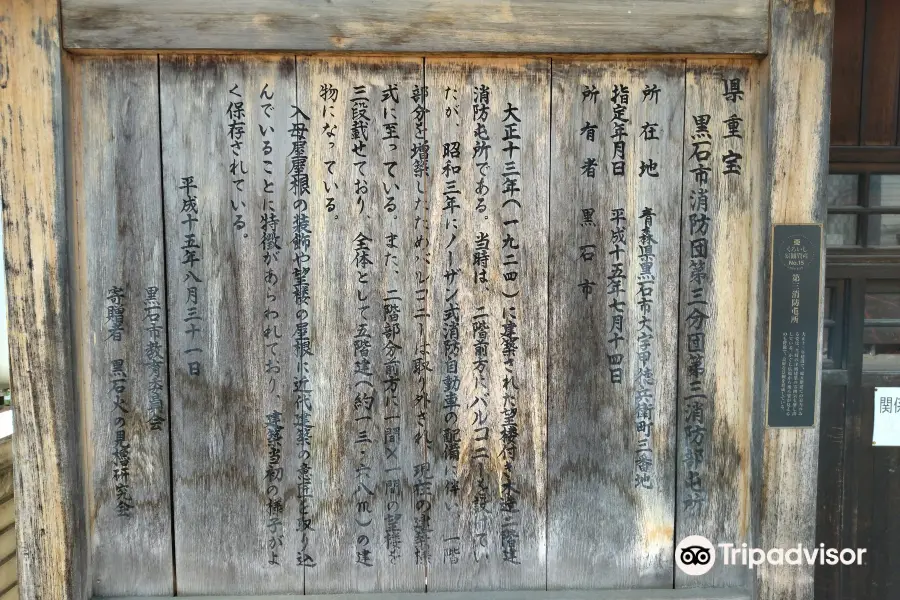 県重宝
黒石市消防団第三分団第三消防部屯所
所在地　青森県黒石市大字甲徳兵衛町三番地
指定年月日　平成十五年七月十四日
所有者　黒石市
大正十三年(一九二四)に建築された望楼付き木造二階建
消防屯所である。当時は、二階前方にバルコニーを設けてい
たが、昭和三年にノーザン式消防自動車の配備に伴い、一階
部分を増築したためバルコニーは取り外され、現在の建築様
式に至っている。また、二階部分前方に一間×一間の望楼を
三段載せており、全体として五階建(約十三・六八m)の建
物になっている。
入母屋屋根の装飾や望楼の屋根に近代建築の意匠を取り込
んでいることに特徴があらわれており、建築当初の様子がよ
く保存されている。
平成十五年八月三十一日
黒石市教育委員会
寄贈者　黒石火の見櫓研究会
No.15
第三消防屯所
関係
Tripadvisor